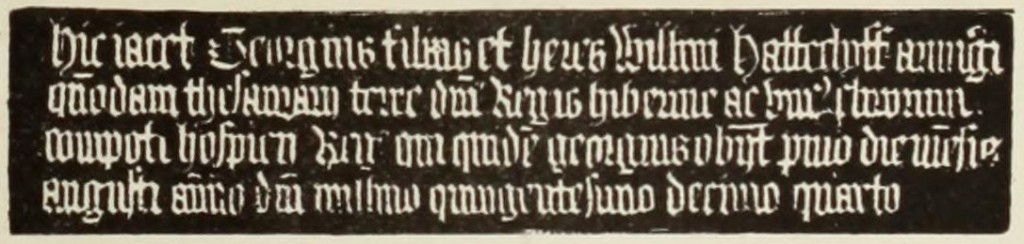 Hic iacet Georgius filius et heres Willmi Hatteclyff armigeri
quodam thesaurarii terre dni Regis hibernie ac clericorum
compoti hospicii Regie qui quide georgius obijt primo die mesis
augusti anno dni millmo quingentesimo decimo quarto